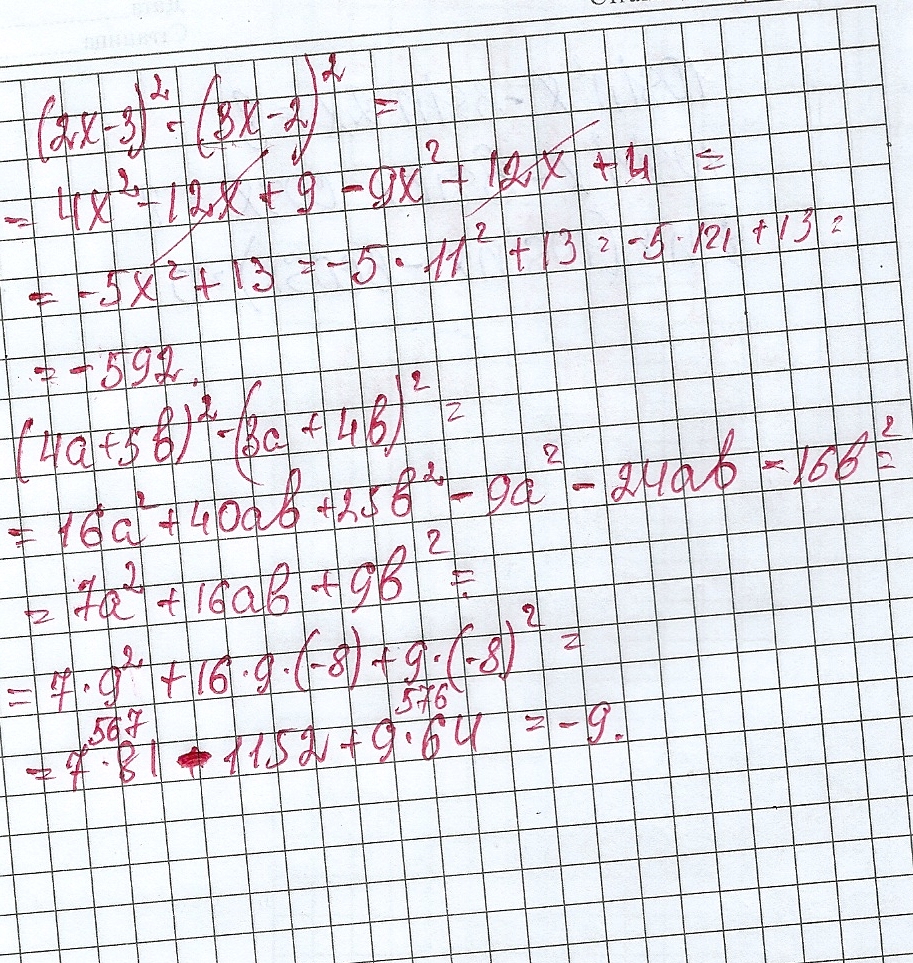 (2x-3)² - (3x-2)² =
= 4x² - 12x + 9 - 9x² + 12x + 4 =
= -5x² + 13 = -5 · 11² + 13 = -5 · 121 + 13 =
= -592.
(4a+5b)² - (3a + 4b)² =
= 16a² + 40ab + 25b² - 9a² - 24ab - 16b² =
= 7a² + 16ab + 9b² =
= 7 · 9² + 16 · 9 · (-8) + 9 · (-8)² =
567 576
= 7 · 81 - 1152 + 9 · 64 = -9.